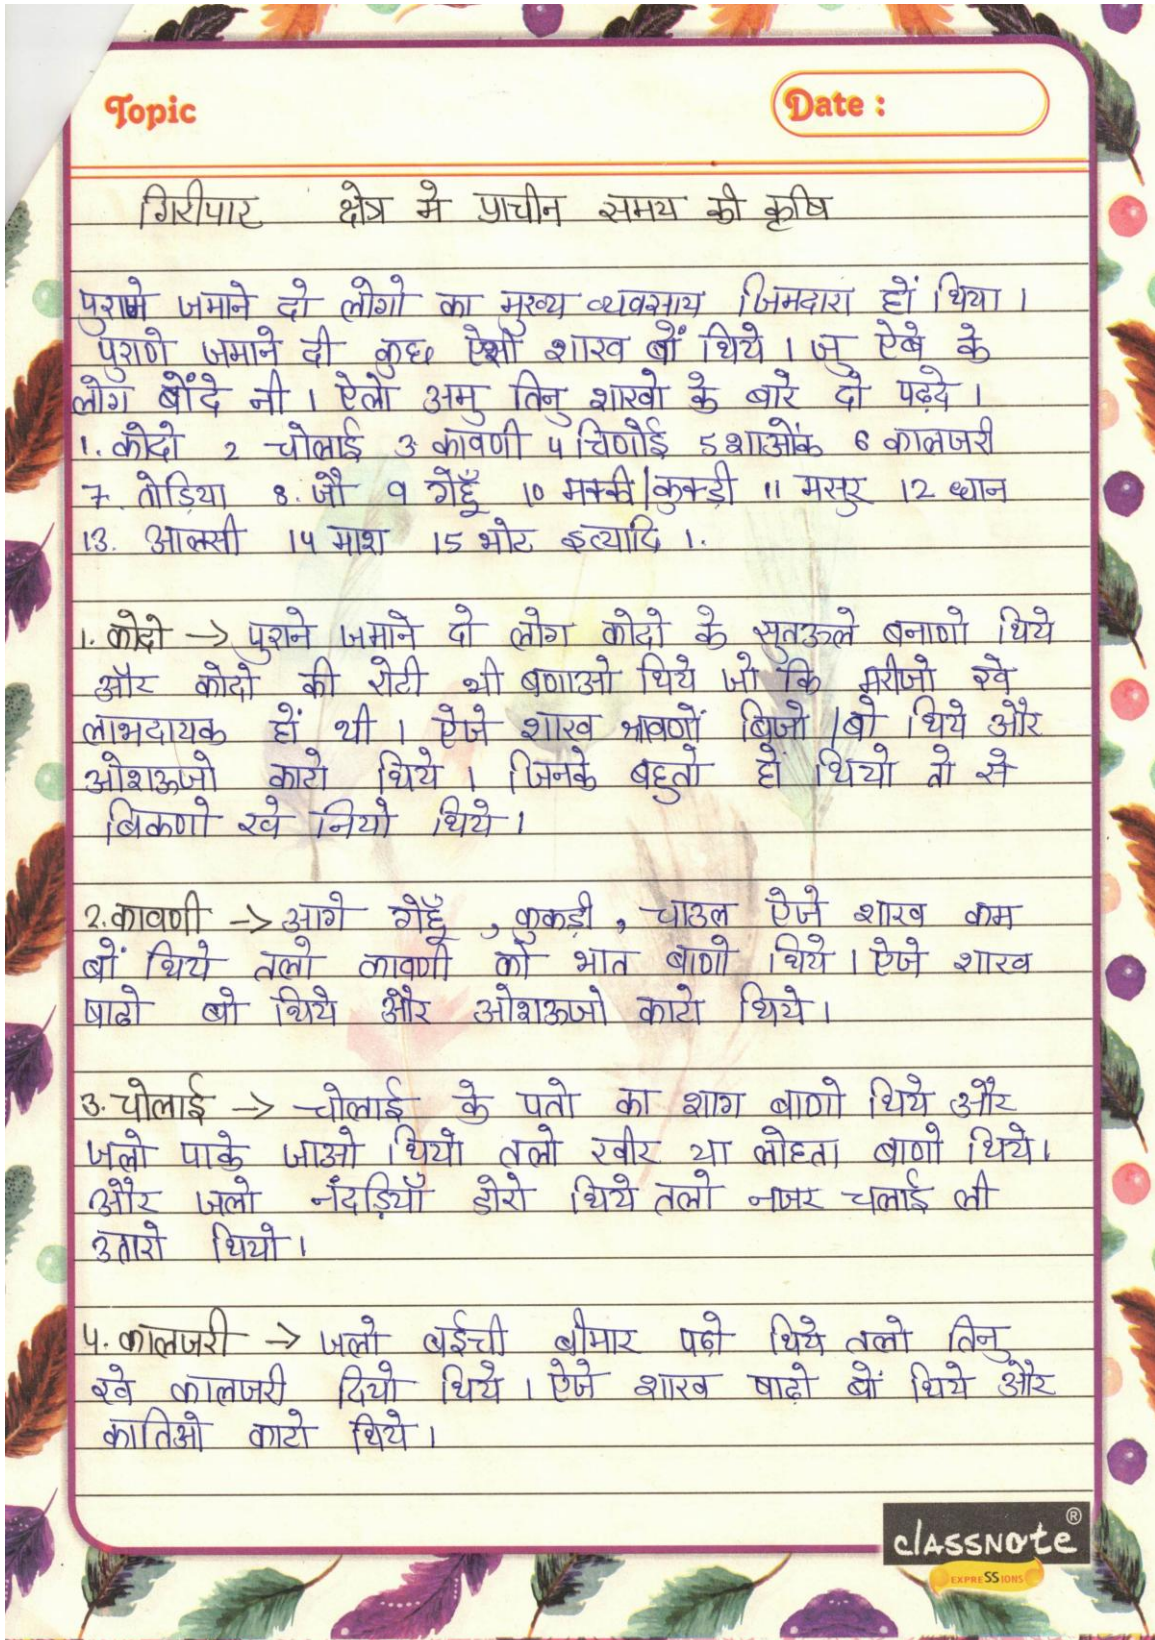 Topic
Date :
गिरीपार क्षेत्र मे प्राचीन समय की कृषि
पुराने जमाने दो लोगो का मुख्य व्यवसाय जिमदारा हों थिया ।
पुराणे जमाने दी कुछ ऐसी शाख बों थिये । जु ऐबे के
लोग बोंदे नी । ऐलो अमु तिनु शाखो के बारे दो पढ़दे ।
1. कोदो 2 चोलाई 3 कावणी 4 चिणोई 5 शाओंक 6 कालजरी
7. तोड़िया 8. जौ 9 गेहूँ 10 मक्की/कुकड़ी 11 मसुर 12 धान
13. आलसी 14 माश 15 भोट इत्यादि ।.
1. कोदो → पुराने जमाने दो लोग कोदो के सुतऊले बनाणो थिये
और कोदो की रोटी भी बणाओ थिये जो कि मरीजो खे
लाभदायक हों थी । ऐजे शाख भावणों बिजो /बो थिये और
ओशऊजो काटो थिये । जिनके बहुतो हों थियो तो से
बिकणो खे नियो थिये ।
2. कावणी → आगे गेहूँ , कुकड़ी , चाउल ऐजे शाख कम
बों थिये तलो कावणी को भात बाणो थिये । ऐजे शाख
षाढो बो थिये और ओशऊजो काटो थिये ।
3. चोलाई → चोलाई के पतो का शाग बाणो थिये और
जलो पाके जाओ थियो तलो खीर या लोहता बाणो थिये ।
और जलो नंदड़ियाँ डोरो थिये तलो नजर चलाई ली
उतारो थियो ।
4. कालजरी → जलो बईची बीमार पढ़ो थिये तलो तिनु
खे कालजरी दियो थिये । ऐजे शाख षाढ़ो बों थिये और
कातिओ काटो थिये ।
classnote ®
EXPRESSIONS